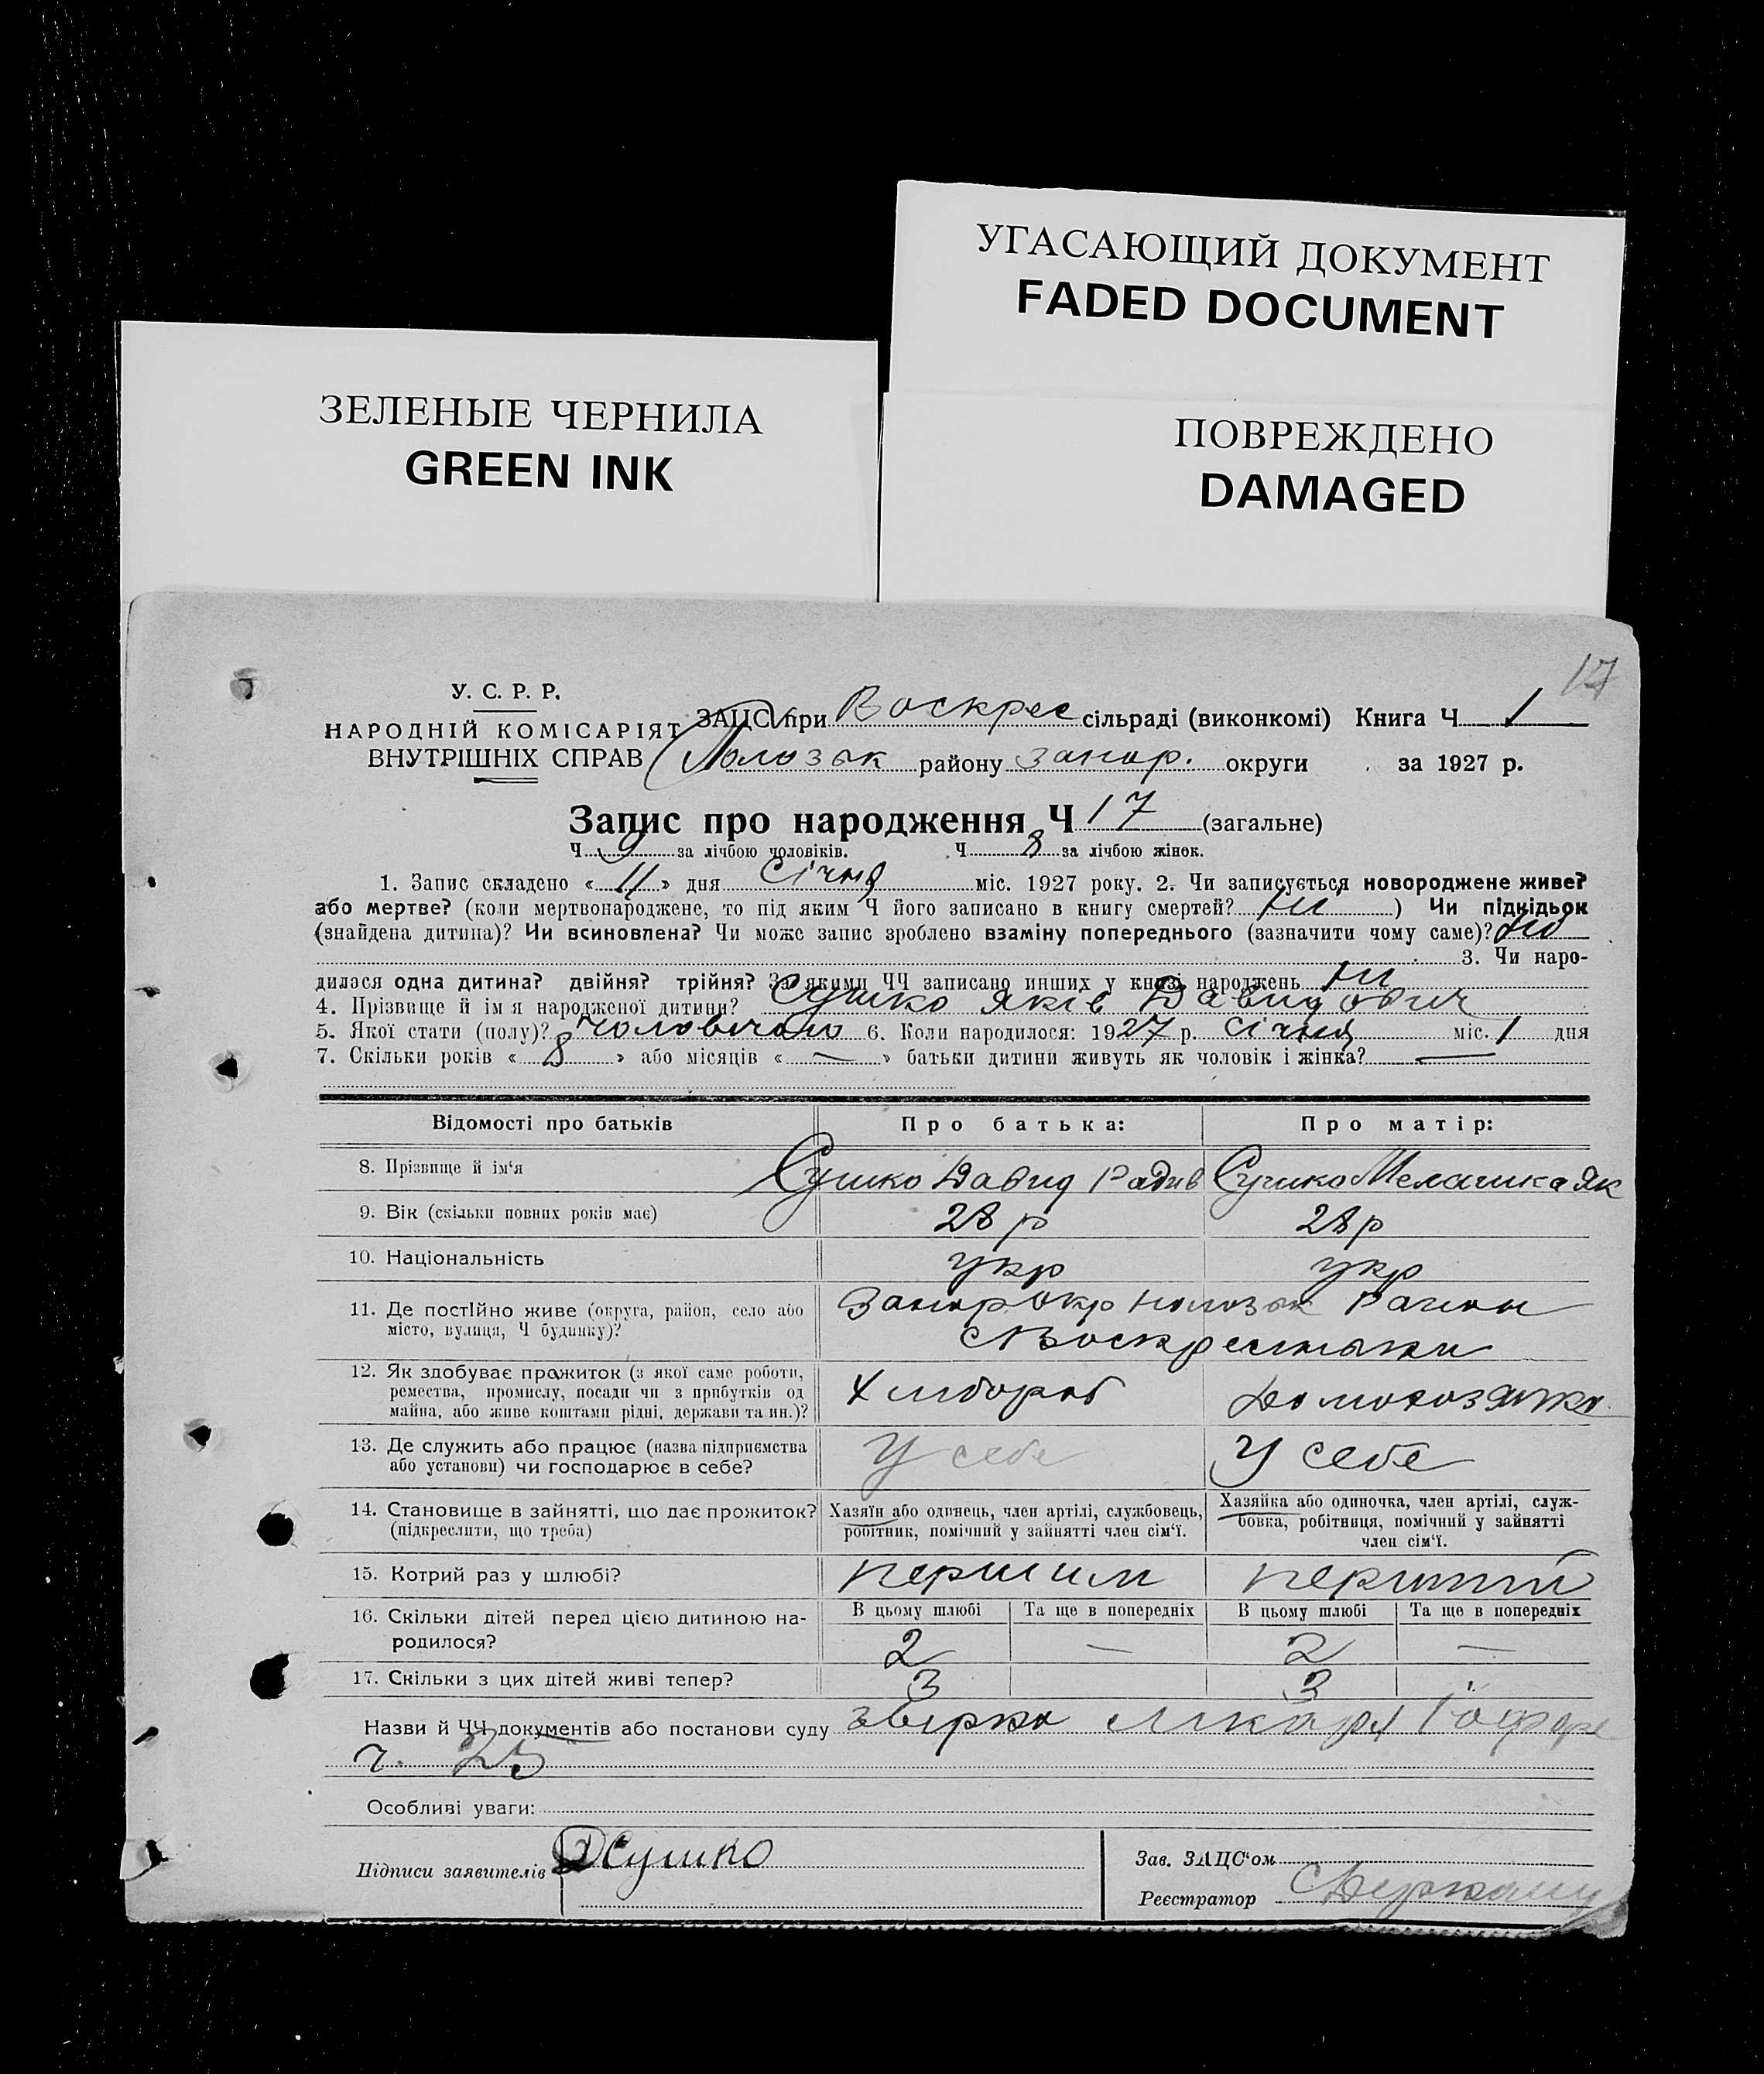 УГАСАЮЩИЙ ДОКУМЕНТ
FADED DOCUMENT
ЗЕЛЕНЫЕ ЧЕРНИЛА
GREEN INK
ПОВРЕЖДЕНО
DAMAGED
17
У. С. Р. Р.
НАРОДНІЙ КОМІСАРІЯТ
ВНУТРІШНІХ СПРАВ
ЗАЦС при Воскрес сільраді (виконкомі) Книга Ч 1
Полозьк району Запор. округи за 1927 р.
Запис про народження Ч 17 (загальне)
Ч 9 за лічбою чоловіків. Ч 8 за лічбою жінок.
1. Запис складено « 11 » дня Січня міс. 1927 року. 2. Чи записується новороджене живе?
або мертве? (коли мертвонароджене, то під яким Ч його записано в книгу смертей? ні ) Чи підкідьок
(знайдена дитина)? Чи всиновлена? Чи може запис зроблено взаміну попереднього (зазначити чому саме)? ні
3. Чи наро-
дилася одна дитина? двійня? трійня? За якими ЧЧ записано инших у книзі народжень ні
4. Прізвище й ім'я народженої дитини? Сушко Яків Давидович
5. Якої стати (полу)? чоловічого 6. Коли народилося: 1927 р. Січня міс. 1 дня
7. Скільки років « 8 » або місяців « — » батьки дитини живуть як чоловік і жінка? —
Відомості про батьків Про батька: Про матір:
8. Прізвище й ім'я Сушко Давид Радив Сушко Меланика Як
9. Вік (скільки повних років має) 28 р 28 р
10. Національність укр укр
11. Де постійно живе (округа, район, село або Запор Окр Полозьк Район
місто, вулиця, Ч будинку)?
12. Як здобуває прожиток (з якої саме роботи,
ремества, промислу, посади чи з прибутків од
майна, або живе коштами рідні, держави та ин.)? Хлібороб
13. Де служить або працює (назва підприємства
або установи) чи господарює в себе? У себе У себе
14. Становище в зайнятті, що дає прожиток?
(підкреслити, що треба)
Хазяїн або одинець, член артілі, службовець,
робітник, помічний у зайнятті член сім'ї.
Хазяйка або одиночка, член артілі, служ-
бовка, робітниця, помічний у зайнятті
член сім'ї.
15. Котрий раз у шлюбі? першим
16. Скільки дітей перед цією дитиною на-
родилося?
В цьому шлюбі Та ще в попередніх В цьому шлюбі Та ще в попередніх
2 — 2 —
17. Скільки з цих дітей живі тепер? 3 3
Назви й ЧЧ документів або постанови суду
ч. 25
Особливі уваги:
Підписи заявителів Д Сушко
Зав. ЗАЦС'ом
Реєстратор